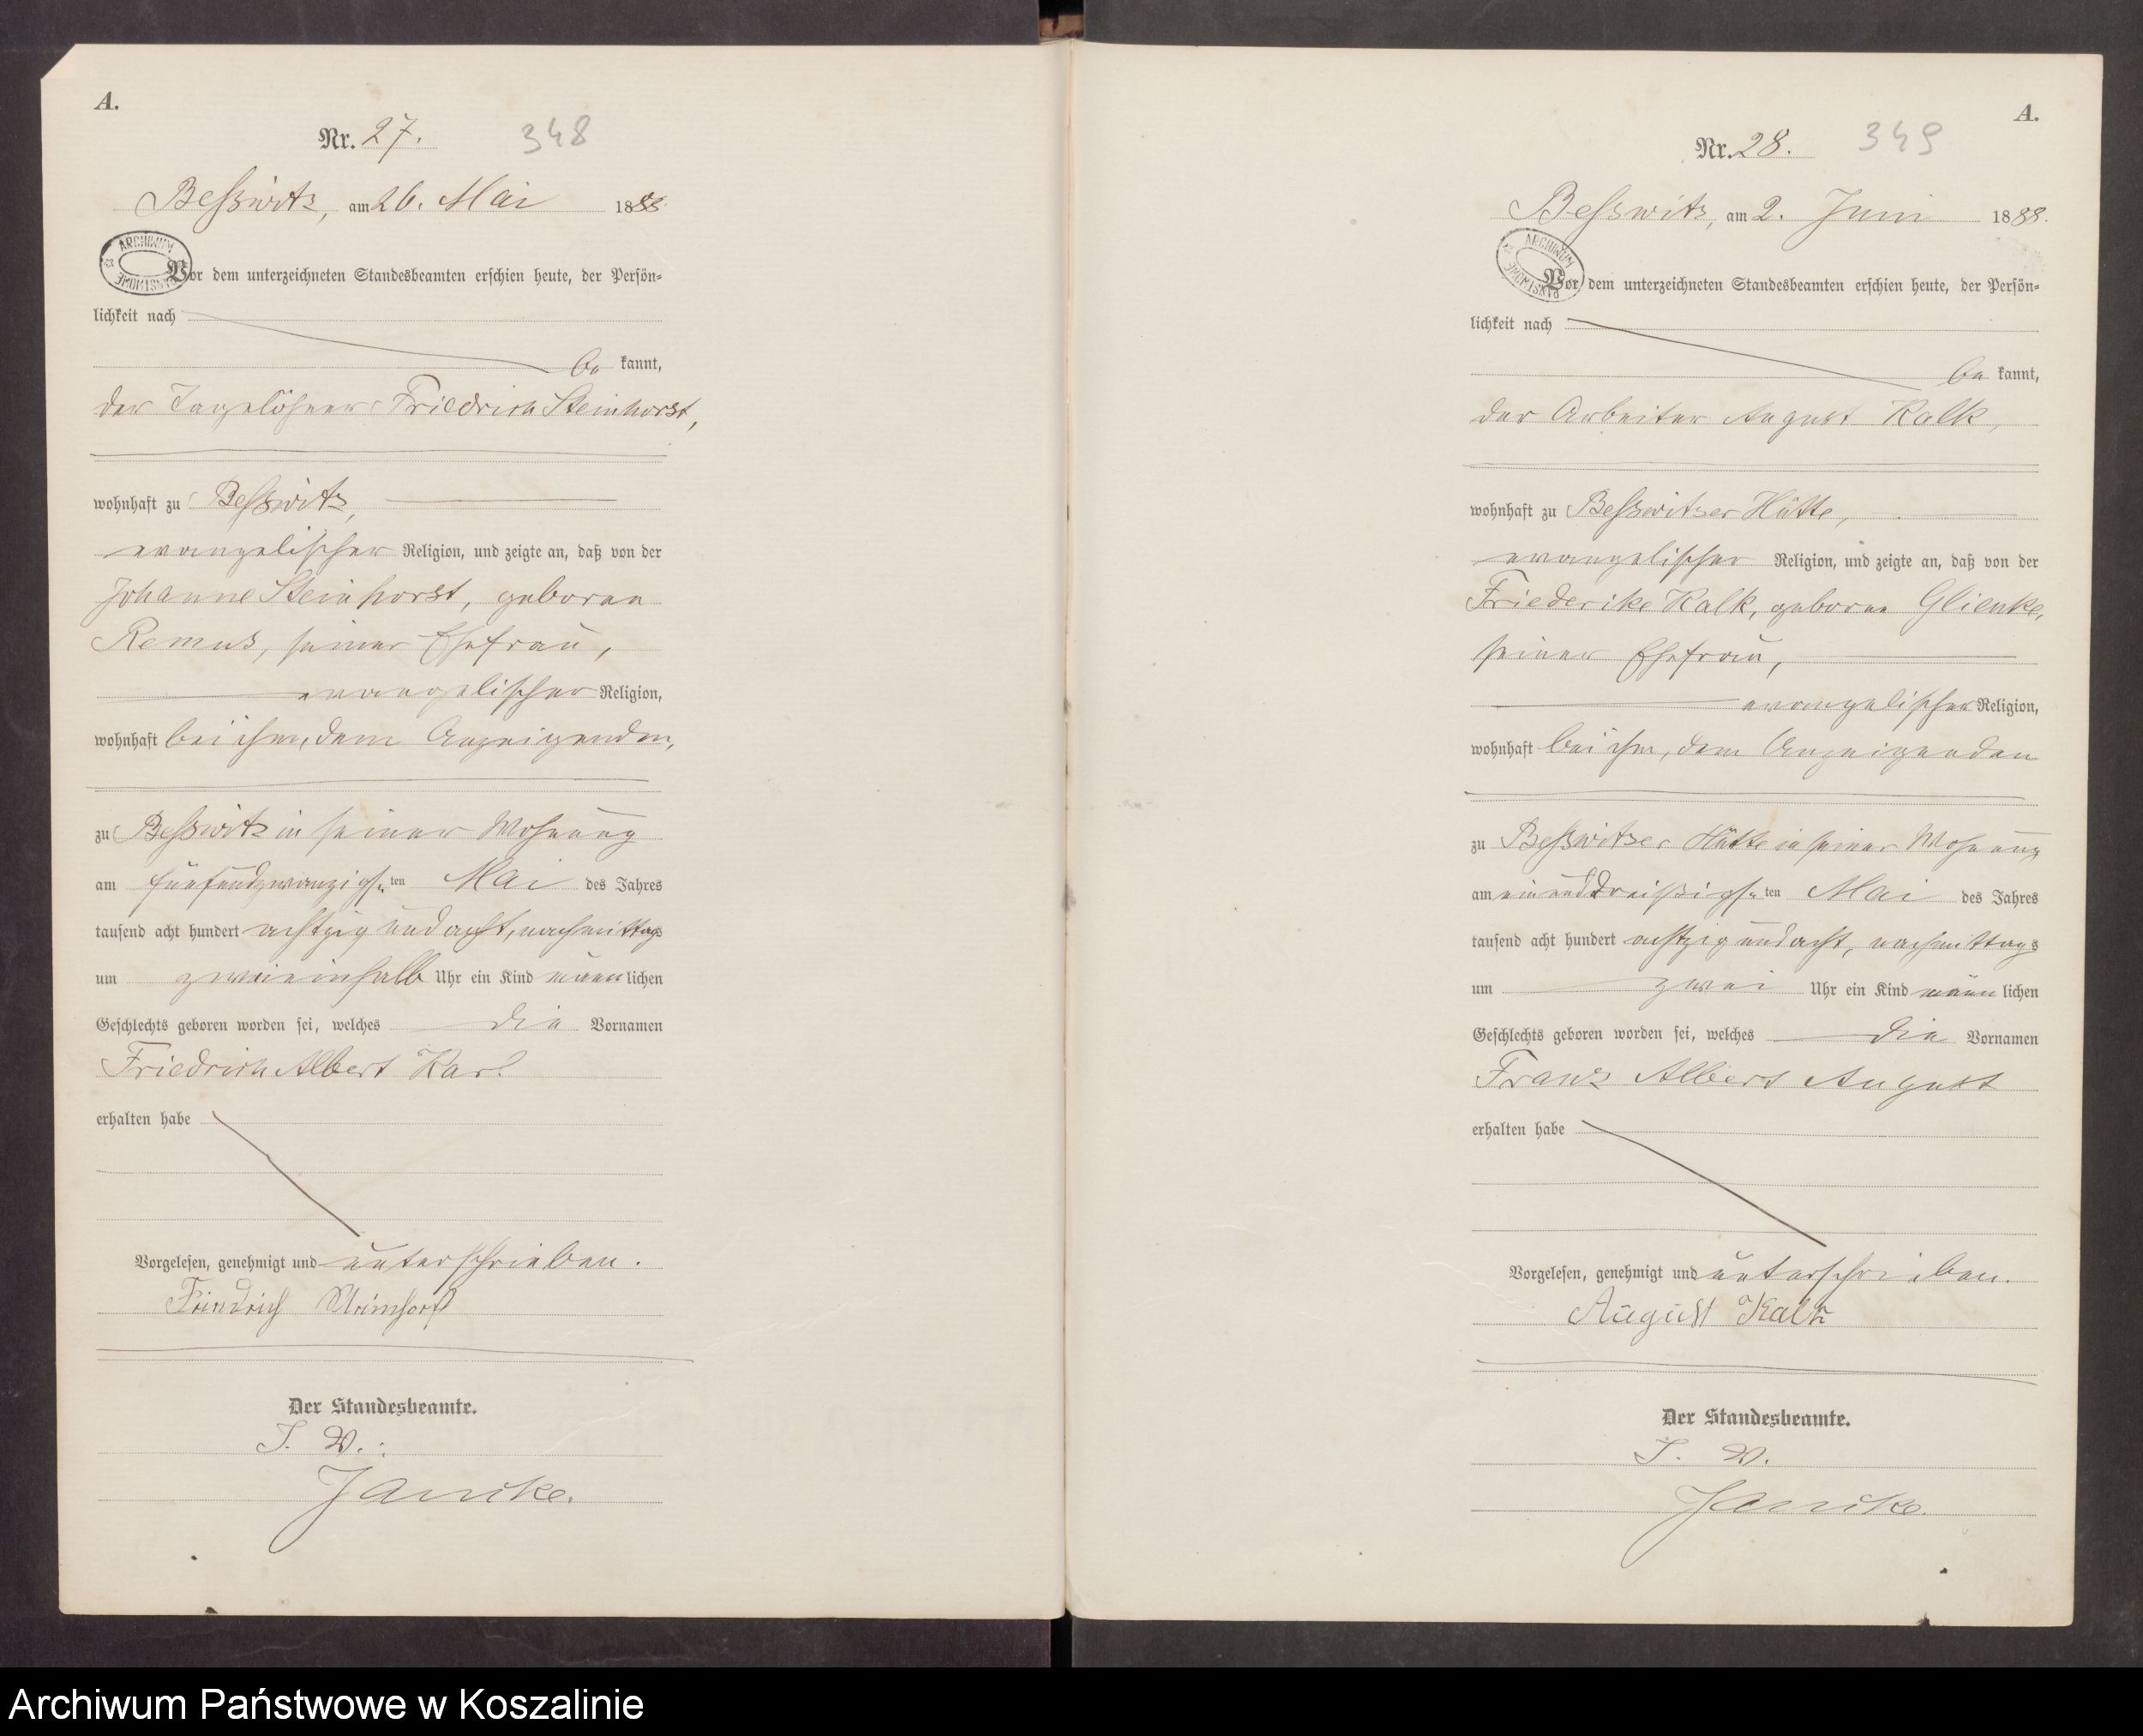 A.
Nr. 27.
348
Beßwitz, am 26. Mai 1888.
ARCHIWUM PAŃSTWOWE
Vor dem unterzeichneten Standesbeamten erschien heute, der Persön-
lichkeit nach
be kannt,
der Tagelöhner Friedrich Steinhorst,
wohnhaft zu Beßwitz,
evangelischer Religion, und zeigte an, daß von der
Johanne Steinhorst, geborene
Remus, seiner Ehefrau,
evangelischer Religion,
wohnhaft bei ihm, dem Anzeigenden,
zu Beßwitz in seiner Wohnung
am fünfundzwanzigsten Mai des Jahres
tausend acht hundert achtzig und acht, nachmittags
um zweieinhalb Uhr ein Kind männlichen
Geschlechts geboren worden sei, welches die Vornamen
Friedrich Albert Karl
erhalten habe
Vorgelesen, genehmigt und unterschrieben.
Friedrich Steinhorst
Der Standesbeamte.
J. V.:
Jancke.
A.
Nr. 28.
349
Beßwitz, am 2. Juni 1888.
ARCHIWUM PAŃSTWOWE
Vor dem unterzeichneten Standesbeamten erschien heute, der Persön-
lichkeit nach
be kannt,
der Arbeiter August Kalk,
wohnhaft zu Beßwitzer Hütte,
evangelischer Religion, und zeigte an, daß von der
Friederike Kalk, geborene Glienke,
seiner Ehefrau,
evangelischer Religion,
wohnhaft bei ihm, dem Anzeigenden
zu Beßwitzer Hütte in seiner Wohnung
am einunddreißigsten Mai des Jahres
tausend acht hundert achtzig und acht, nachmittags
um zwei Uhr ein Kind männlichen
Geschlechts geboren worden sei, welches die Vornamen
Franz Albert August
erhalten habe
Vorgelesen, genehmigt und unterschrieben.
August Kalk
Der Standesbeamte.
J. V.
Jancke.
Archiwum Państwowe w Koszalinie